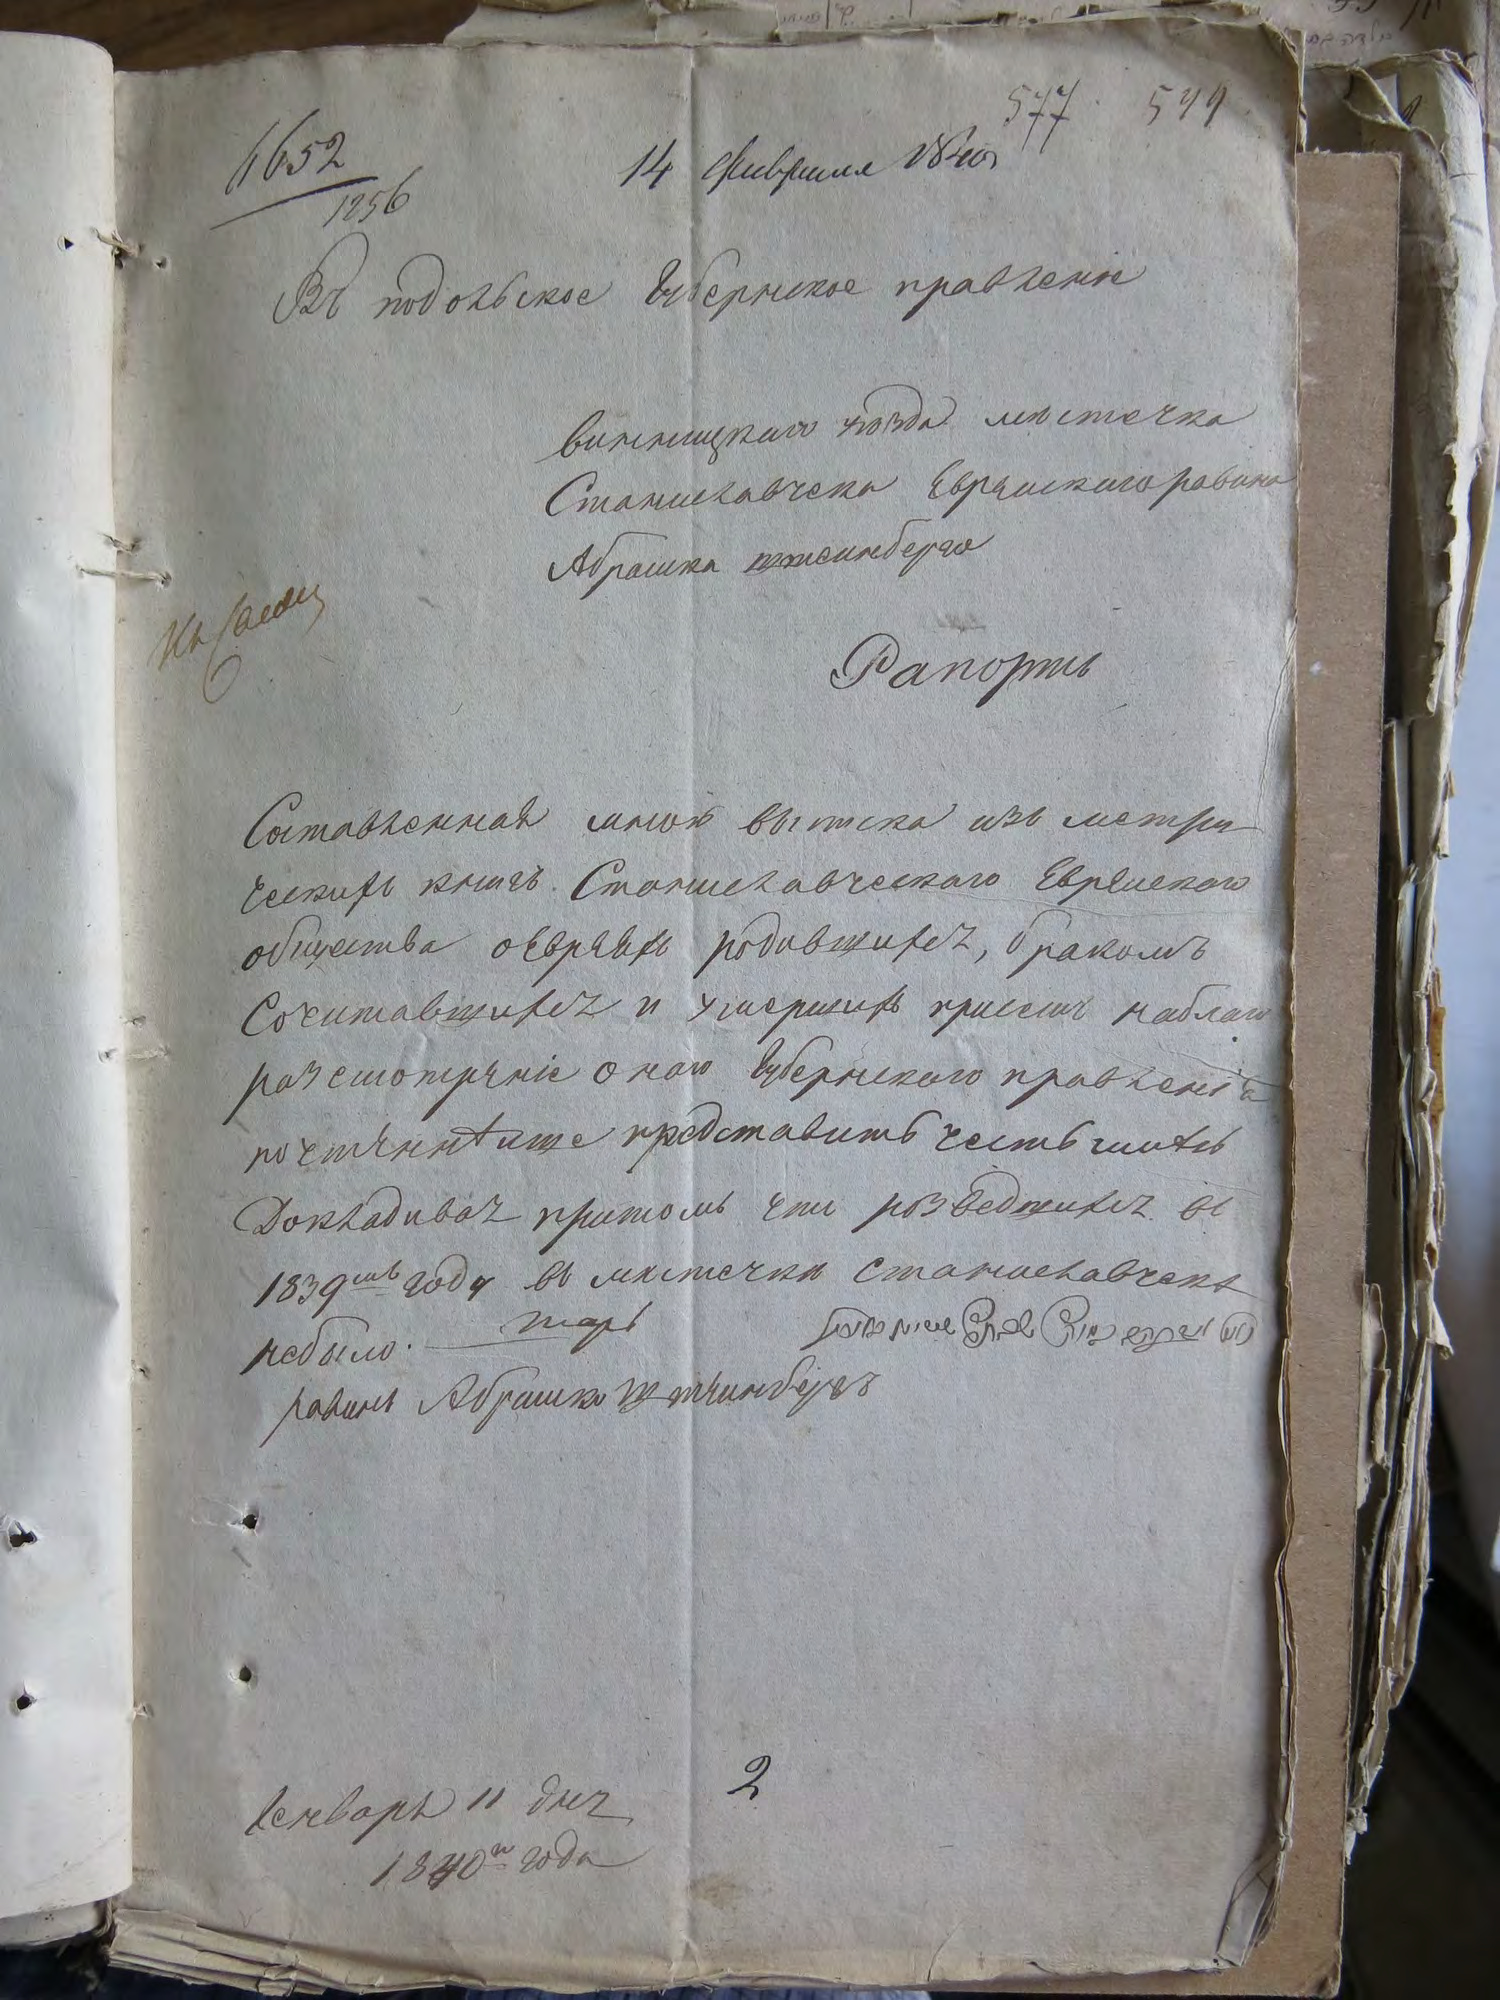 577 549
1652
1256
14 февраля 1840
Въ подольское Губернское правленіе
винницкаго уѣзда мѣстечка
Станиславчека Еврейскаго равина
Абрашка штеинберга
Рапортъ
Составленная мною выписка изъ метри
ческихъ книгъ Станиславческаго Еврейскаго
общества оевреяхъ родившихся, бракомъ
Сочитавшихся и умершихъ присемъ наблаго
разсмотреніе онаго Губернскаго правленія
почтеннѣише представить честь имѣю
Докладивая притомъ что розведшихся въ
1839мъ году въ местечки Станиславчекѣ
небыло.
равинъ Абрашко Штеинбергъ
Генваря 11 дня
1840го года
2